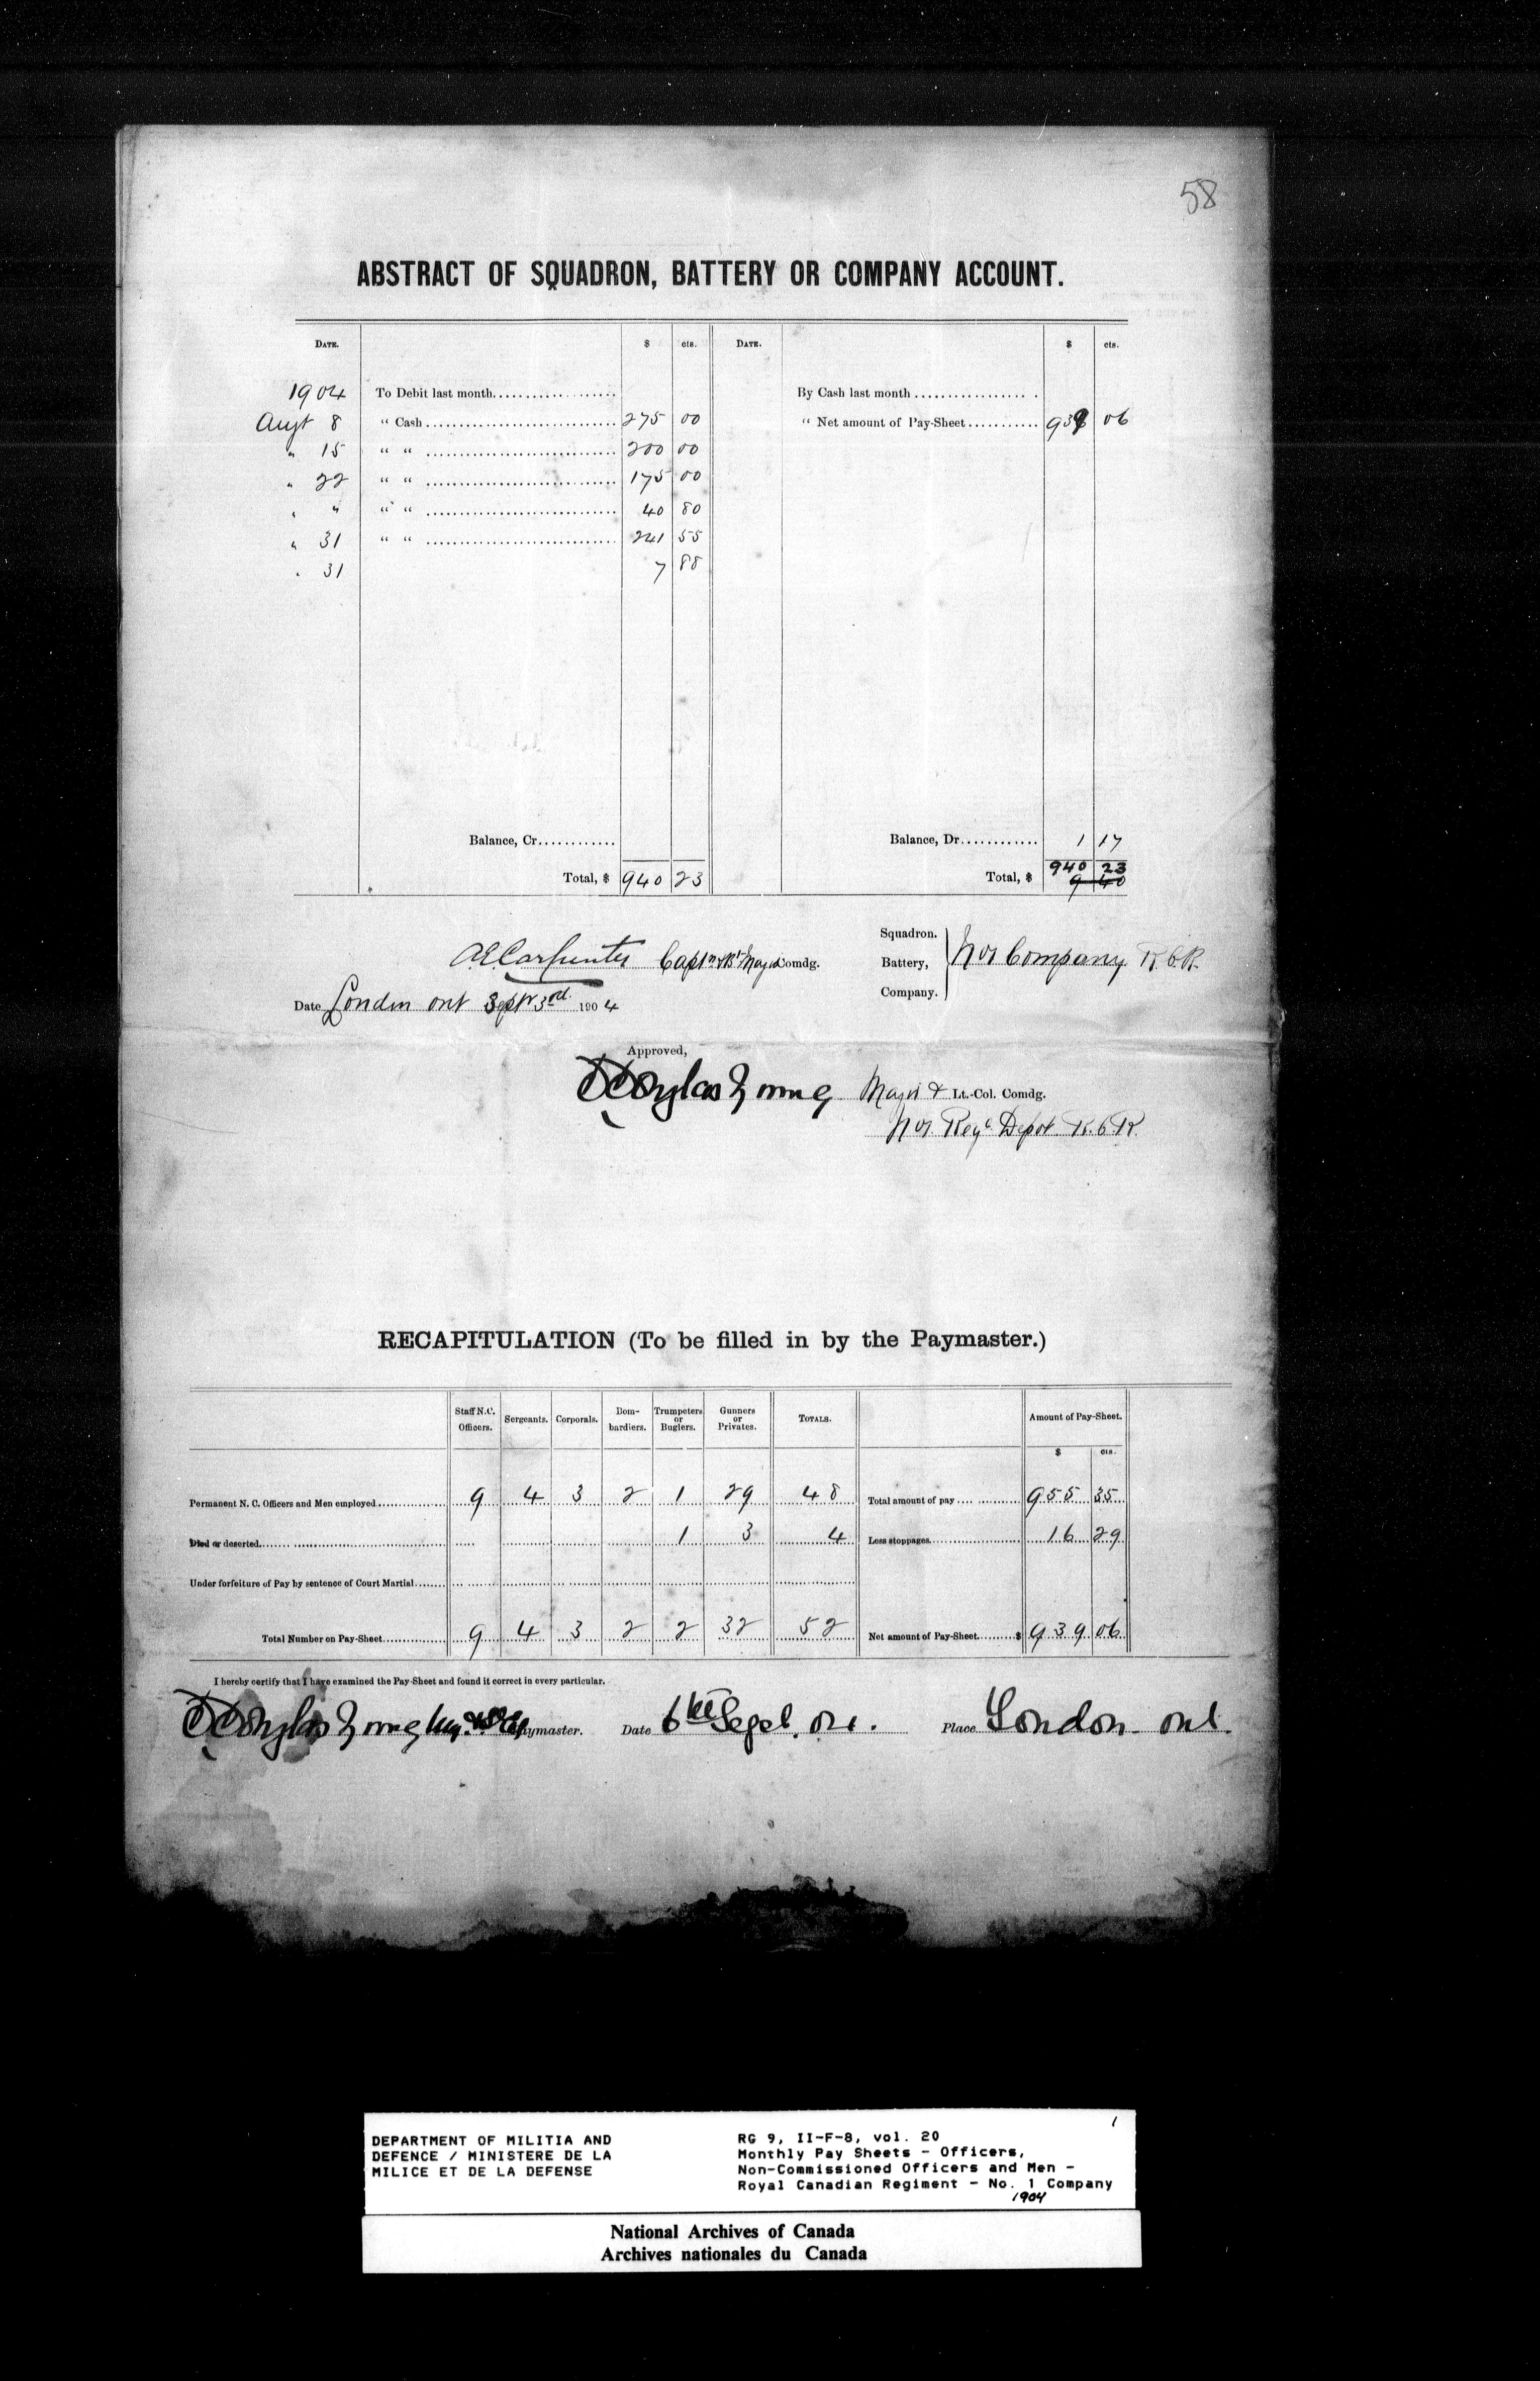 58
ABSTRACT OF SQUADRON, BATTERY OR COMPANY ACCOUNT.
DATE. $ cts. DATE. $ cts.
1904 To Debit last month By Cash last month
Augt 8 " Cash 275 00 " Net amount of Pay-Sheet 939 06
" 15 " " 200 00
" 22 " " 175 00
" " " " 40 80
" 31 " " 241 55
" 31 7 88
Balance, Cr. Balance, Dr. 1 17
940 23
Total, $ 940 23 Total, $ 9 40
Squadron.
AE Carpenter Capt & Bt Major Comdg. Battery, No 1 Company R.C.R.
Company.
Date London Ont Sept 3rd 1904
Approved,
D Douglas Young Major & Lt.-Col. Comdg.
No 1 Regl Depot R.C.R.
RECAPITULATION (To be filled in by the Paymaster.)
Staff N.C. Officers. Sergeants. Corporals. Bom-bardiers. Trumpeters or Buglers. Gunners or Privates. TOTALS. Amount of Pay-Sheet.
$ cts.
Permanent N. C. Officers and Men employed 9 4 3 2 1 29 48 Total amount of pay 955 35
Died or deserted 1 3 4 Less stoppages 16 29
Under forfeiture of Pay by sentence of Court Martial
Total Number on Pay-Sheet 9 4 3 2 2 32 52 Net amount of Pay-Sheet $ 939 06
I hereby certify that I have examined the Pay-Sheet and found it correct in every particular.
D Douglas Young Paymaster. Date 6th Sept. 04. Place London Ont.
1
DEPARTMENT OF MILITIA AND
DEFENCE / MINISTERE DE LA
MILICE ET DE LA DEFENSE
RG 9, II-F-8, vol. 20
Monthly Pay Sheets - Officers,
Non-Commissioned Officers and Men -
Royal Canadian Regiment - No. 1 Company
1904
National Archives of Canada
Archives nationales du Canada